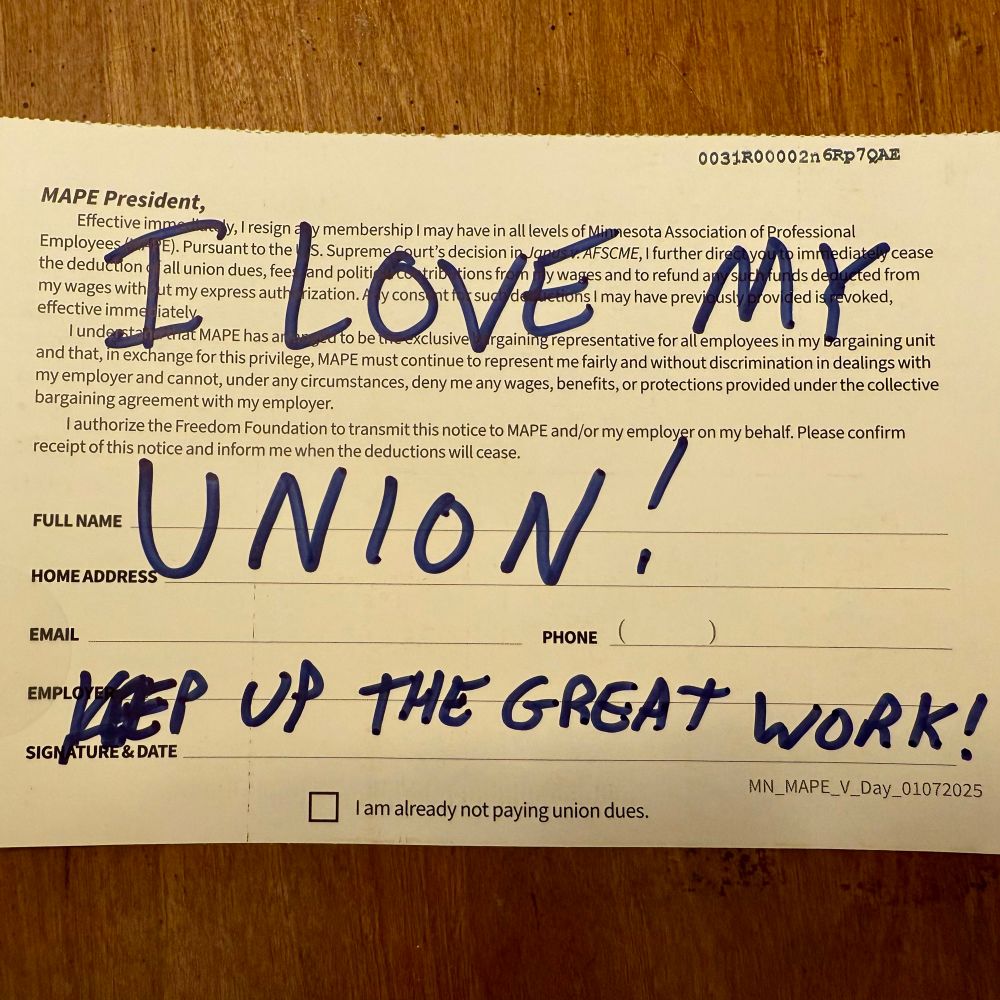 0031R00002n6Rp7QAE
MAPE President,
Effective immediately, I resign any membership I may have in all levels of Minnesota Association of Professional
Employees (MAPE). Pursuant to the U.S. Supreme Court's decision in Janus v. AFSCME, I further direct you to immediately cease
the deduction of all union dues, fees, and political contributions from my wages and to refund any such funds deducted from
my wages without my express authorization. Any consent for such deductions I may have previously provided is revoked,
effective immediately.
I LOVE MY
I understand that MAPE has arranged to be the exclusive bargaining representative for all employees in my bargaining unit
and that, in exchange for this privilege, MAPE must continue to represent me fairly and without discrimination in dealings with
my employer and cannot, under any circumstances, deny me any wages, benefits, or protections provided under the collective
bargaining agreement with my employer.
I authorize the Freedom Foundation to transmit this notice to MAPE and/or my employer on my behalf. Please confirm
receipt of this notice and inform me when the deductions will cease.
UNION!
FULL NAME
HOME ADDRESS
EMAIL PHONE ( )
EMPLOYER
KEEP UP THE GREAT WORK!
SIGNATURE & DATE
MN_MAPE_V_Day_01072025
I am already not paying union dues.